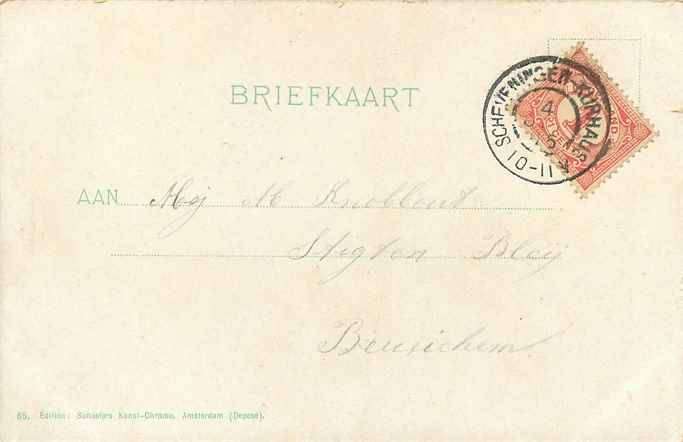 BRIEFKAART
SCHEVENINGEN-KURHAUS
4
10-11
AAN Mej M Knobbout
Stigten Bleij
Beusichem.
65. Edition: Schaefers Kunst-Chromo, Amsterdam (Deposé).